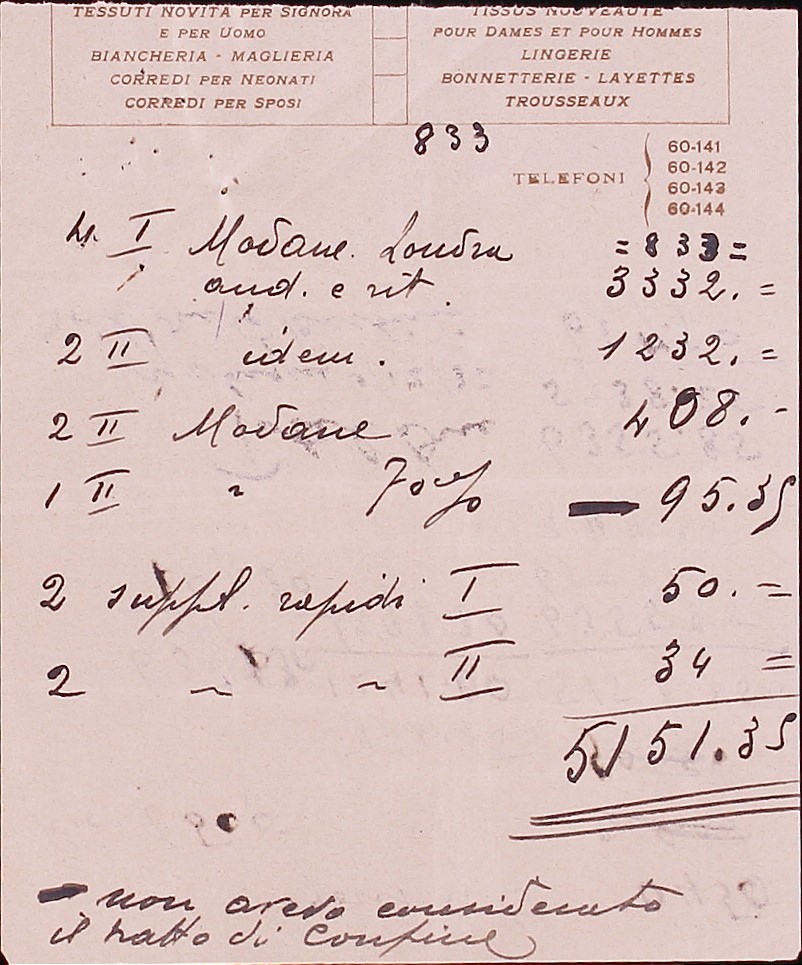 TESSUTI NOVITÀ PER SIGNORA
E PER UOMO
BIANCHERIA - MAGLIERIA
CORREDI PER NEONATI
CORREDI PER SPOSI
TISSUS NOUVEAUTÉ
POUR DAMES ET POUR HOMMES
LINGERIE
BONNETTERIE - LAYETTES
TROUSSEAUX
833
TELEFONI
60-141
60-142
60-143
60-144
4 I Modane. Londra = 833 =
and. e rit. 3332. =
2 II idem. 1232. =
2 II Modane 408. -
1 II " 70% 95.35
2 suppl. rapidi I 50. =
2 ~ ~ II 34 =
5151.35
non avevo considerato
il tratto di confine